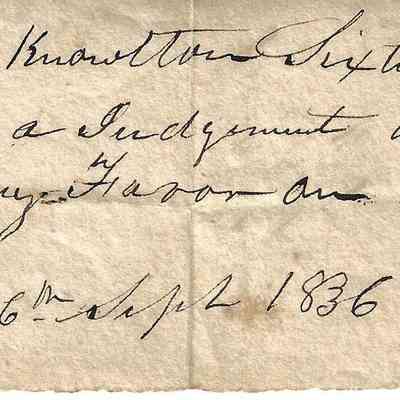 Knowlton Sixt
a Judgement
my Favor on
6th Sept 1836